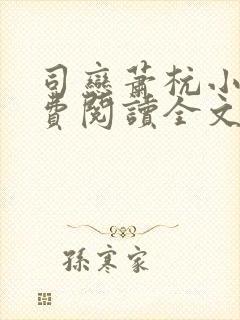 司戀蕭杭小
費閱讀全文
孫寒家